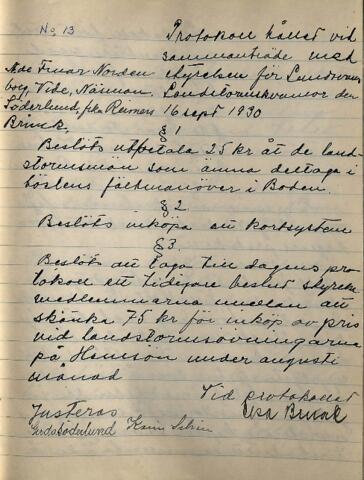 No 13
Protokoll hållet vid
sammanträde med
styrelsen för Landsturms
Landstormskvinnor den
16 sept 1930
N de Fruar Norden
berg, Vide, Näsman,
Söderlund, frk Reimers
Brinck.
§ 1
Beslöts utbetala 25 kr åt de land-
stormsmän som ämna deltaga i
höstens fältmanöver i Boden.
§ 2.
Beslöts inköpa ett kortsystem
§ 3.
Beslöts att taga till dagens pro
tokoll ett tidigare beslut styrelse
medlemmarna emellan att
skänka 75 kr för inköp av pris
vid landstormsövningarna
på Hemsön under augusti
månad
Vid protokollet
Elsa Brinck
Justeras
Gerda Söderlund Karin